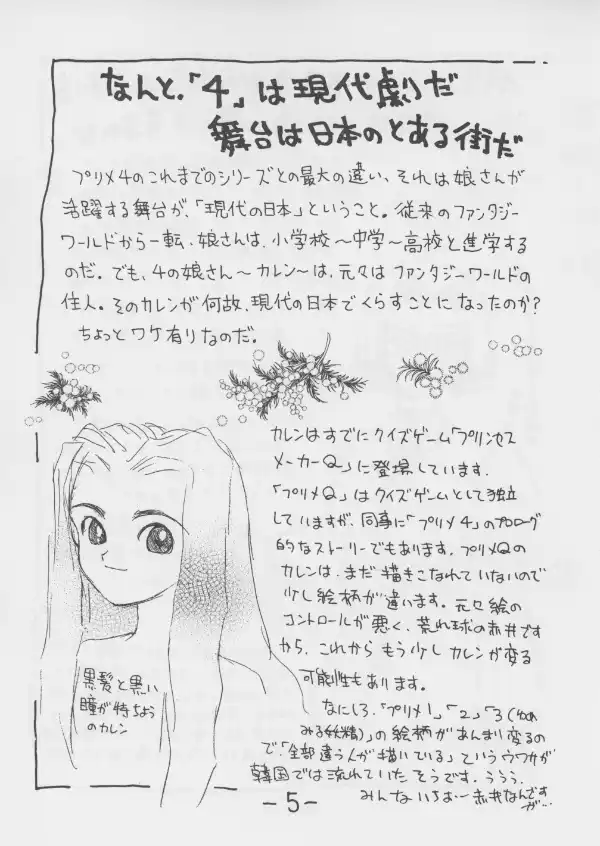 なんと、「4」は現代劇だ
舞台は日本のとある街だ
プリメ4のこれまでのシリーズとの最大の違い、それは娘さんが
活躍する舞台が、「現代の日本」ということ。従来のファンタジー
ワールドから一転、娘さんは、小学校〜中学〜高校と進学する
のだ。でも、4の娘さん〜カレン〜は、元々はファンタジーワールドの
住人。そのカレンが何故、現代の日本でくらすことになったのか?
ちょっとワケ有りなのだ。
カレンはすでにクイズゲーム「プリンセス
メーカーQ」に登場しています。
「プリメQ」はクイズゲームとして独立
していますが、同事に「プリメ4」のプロローグ
的なストーリーでもあります。プリメQの
カレンは、まだ描きこなれていないので
少し絵柄が違います。元々絵の
コントロールが悪く、荒れ球の赤井です
から、これからもう少しカレンが変る
可能性もあります。
なにしろ、「プリメ1」、「2」、「3(ゆめ
みる妖精)」の絵柄があんまり変るの
で「全部違う人が描いている」というウワサが
韓国では流れていたそうです。ううう、
みんないちおー赤井なんです
が…
黒髪と黒い
瞳が特ちょう
のカレン
-5-